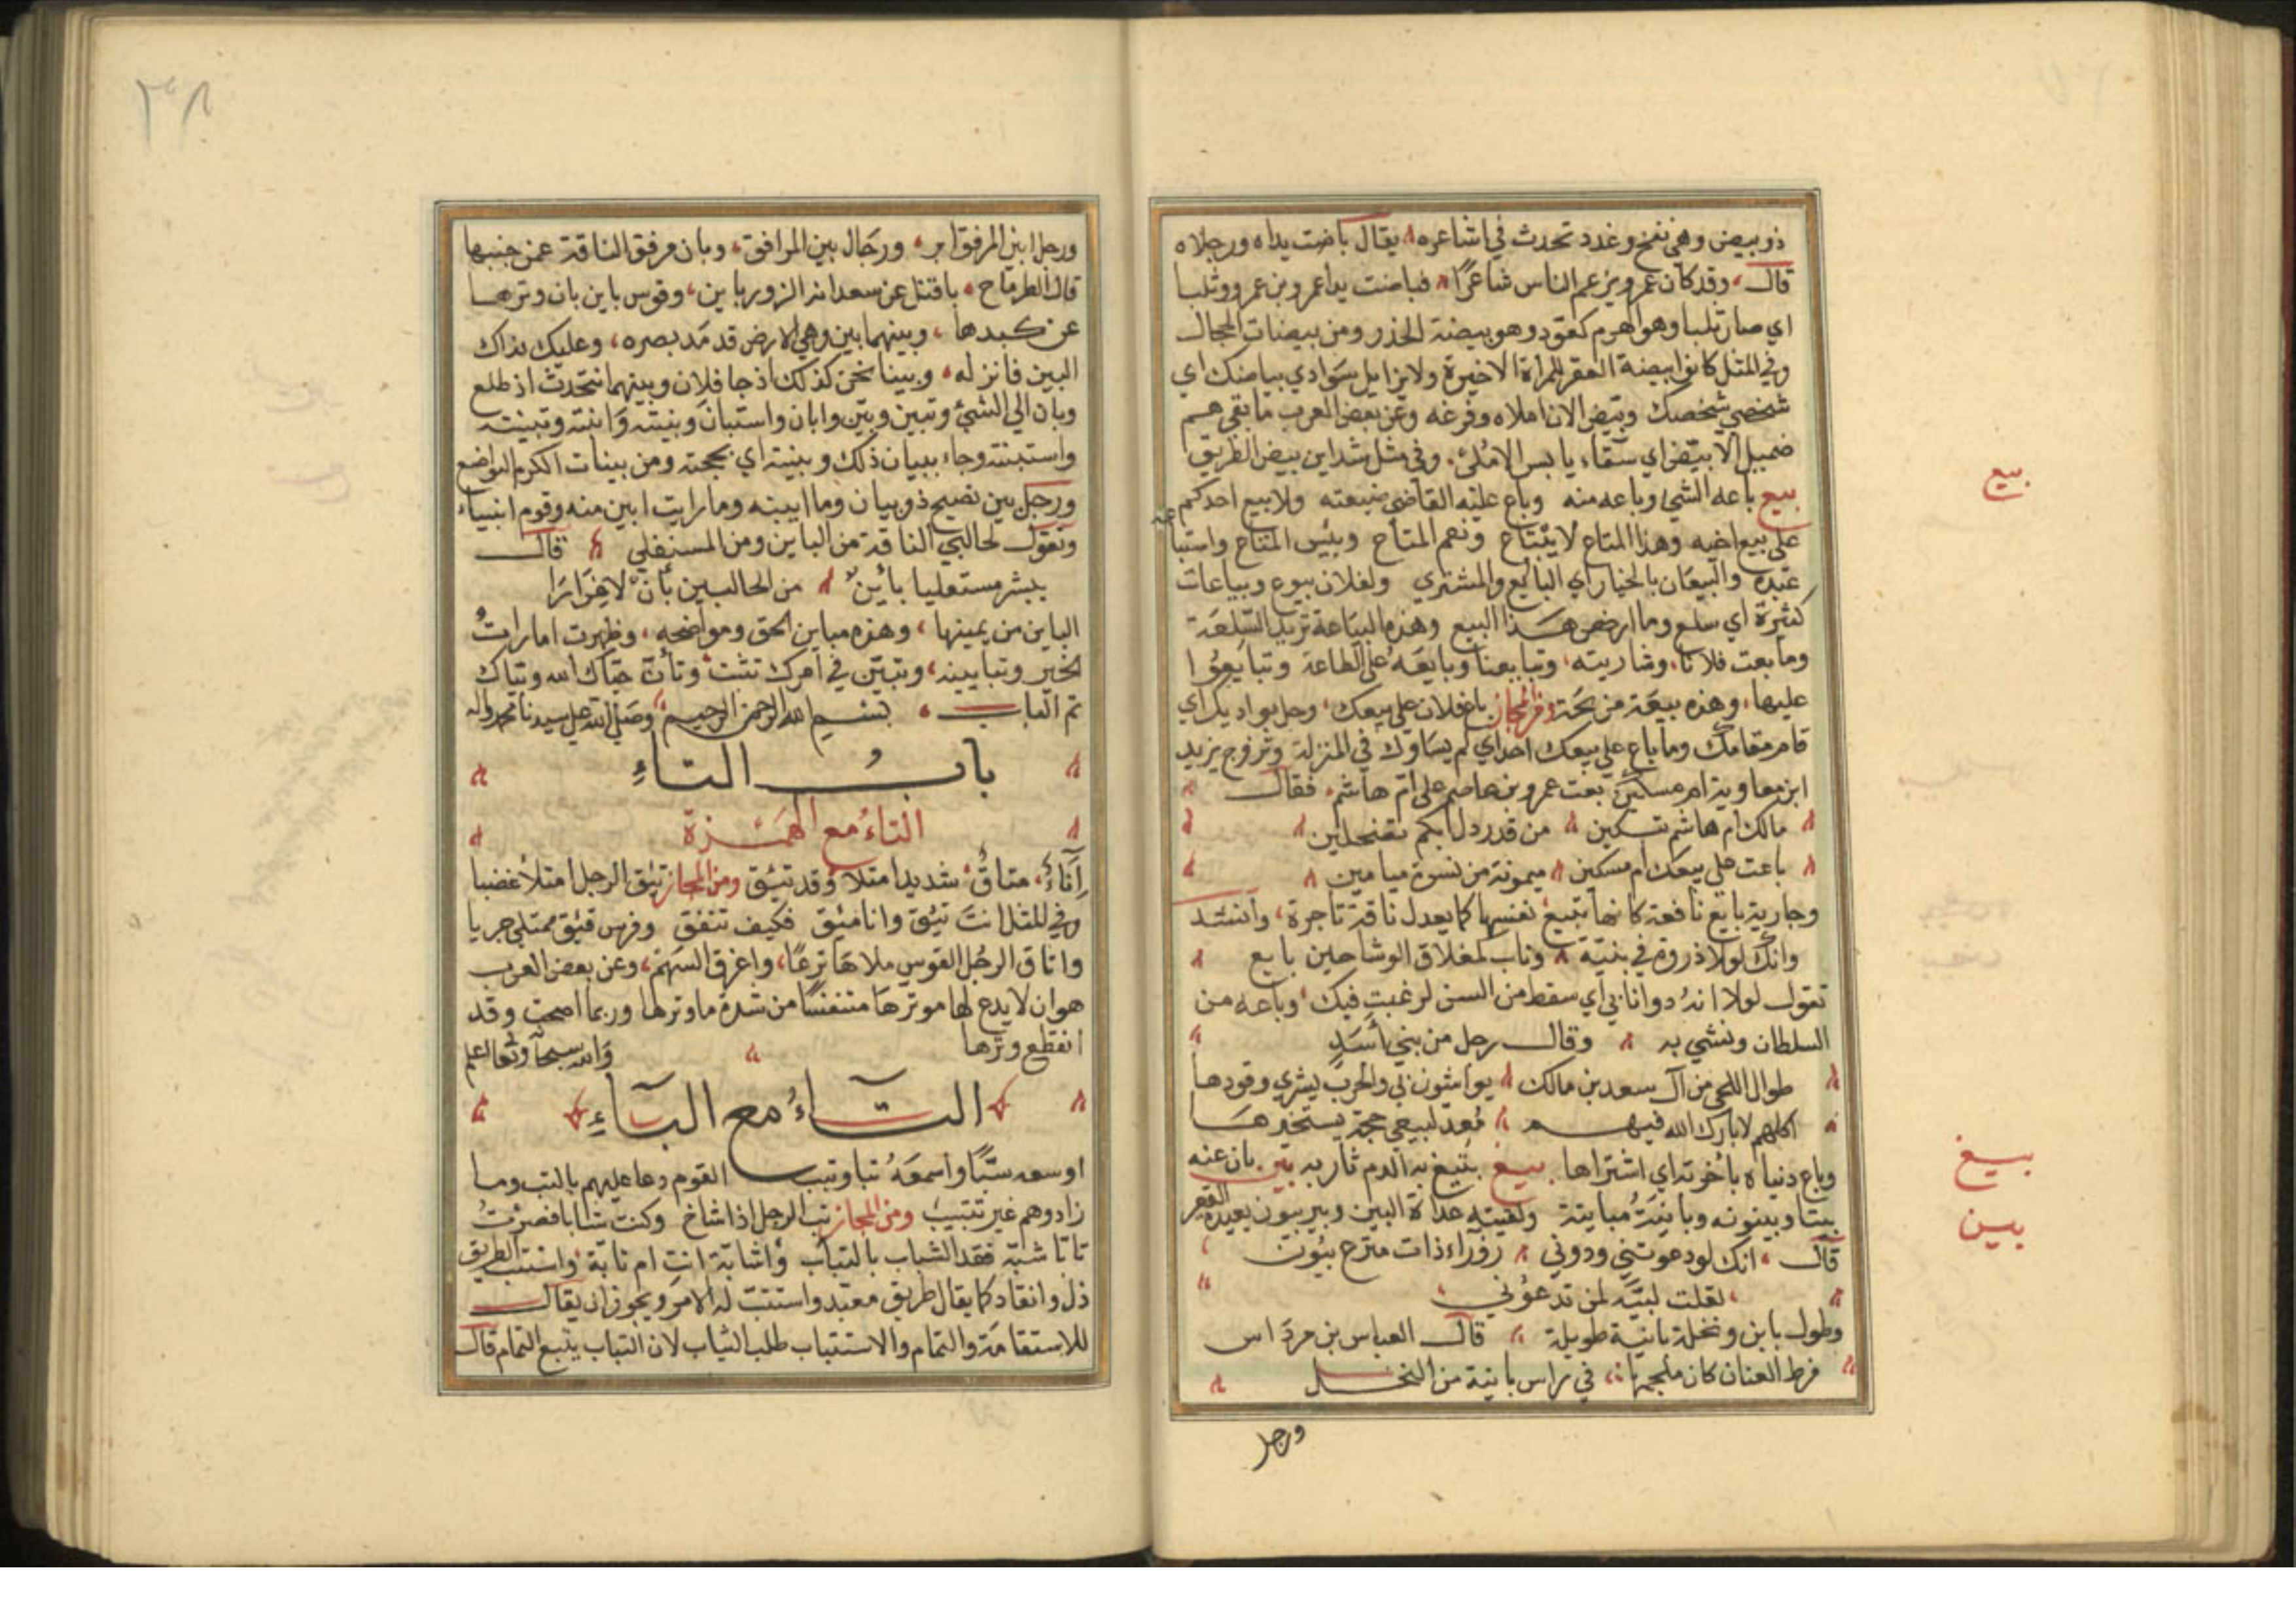 ذو بيض وهي نفخ وغدد تحدث في اشاعره يقال باضت يداه ورجلاه
قال وقد كان عمرو يزعم الناس شاعرًا فباضت يدا عمرو بن عمرو وثلبا
اي صار ثلبا وهو الهرم كعقود وهو بيضة الخدر ومن بيضات الحجال
وفي المثل كانوا بيضة العقر للمرة الاخيرة ولا يزايل سوادي بياضك اي
شخصي شخصك وبيض الانا ملاه وفرغه وعن بعض العرب ما بقي لهم
ضميل الا بيض اي سقاء يابس الا ملئ وفي مثل سد ابن بيض الطريق
بيع باعه الشي وباعه منه وباع عليه القاضي ضيعته ولا يبيع احدكم
على بيع اخيه وهذا المتاع لا يبتاع ونعم المتاع وبئس المتاع واستباعه
عبده والبيعان بالخيار اي البائع والمشتري ولفلان بيوع وبياعات
كثيرة اي سلع وما ارخص هذا البيع وهذه البياعة تريد السلعة
وما بعت فلانا وشاريته وتبايعنا وبايعه على الطاعة وتبايعوا
عليها وهذه بيعة مربحة ومن المجاز باع فلان على بيعك وحل بواديك اي
قام مقامك وما باع على بيعك احد اي لم يساوك في المنزلة وتزوج يزيد
ابن معاوية ام مسكين بنت عمرو بن عاصم على ام هاشم فقال
مالك ام هاشم تبكين من قدر دل بكم تضجين
باعت على بيعك ام مسكين ميمونة من نسوة ميامين
وجارية بايع نافعة كانها تبيع نفسها كما يعدل ناقة تاجرة وانشد
وانك لولا ذروة في بنيتة وناب لمغلاق الوشاحين بايع
تقول لولا انه دوا نابي اي سقط من السن لرغبت فيك وباعه من
السلطان ونشي به وقال رجل من بني اسد
طوال اللحى من آل سعد بن مالك يواشون بي والحرب يشري وقودها
اكلهم لا بارك الله فيهم معد لبيعي حجة يستجدها
وباع دنياه باخرته اي اشتراها بيغ تبيغ به الدم ثار به بين بان عنه
بينا وبينونة وباينه مباينة ولقيته غداة البين وبير بيون بعيدة القعر
قال انك لو دعوتني ودوني زوراء ذات منزع بيون
لقلت لبيه لمن يدعوني
وطول باين ونخلة باينة طويلة قال العباس بن مرداس
فرط العنان كان ملجمها في راس باينة من النخل
ورجل
بيع
بيغ
بين
٣٨
ورجل ابين المرفق ابر ورجال بين المرافق وبان مرفق الناقة عن جنبها
قال الطرماح بافتل عن سعدانه الزور باين وقوس باين بان وترها
عن كبدها وبينهما بين وهي الارض قد مد بصره وعليك بذاك
البين فانزله وبينا نحن كذلك اذ جا فلان وبينهما نتحدث اذ طلع
وبان الي الشيء وتبين وبين وابان واستبان وبينته وابنته وتبينته
واستبنته وجاء ببيان ذلك وبينته اي بحجته ومن بينات الكرم التواضع
ورجل بين نصيح ذو بيان وما ابينه وما رايت ابين منه وقوم ابيناء
وتقول لحالبي الناقة من الباين ومن المستعلي قال
يبشر مستعليا باين من الحالبين بان لا غرارا
الباين من يمينها وهذه مباين الحق ومواضحه وظهرت امارات
الخير وتبايينه وتبين في امرك تثبت وتأن حياك الله وبياك
تم الباب بسم الله الرحمن الرحيم وصلى الله على سيدنا محمد واله
باب التاء
التاء مع الهمزة
متاق شديد امتلا وقد تئق ومن المجاز تئق الرجل امتلا غضبا
وفي المثل انت تئق وانا مئق فكيف نتفق وفرس تئق ممتلي جريا
واتاق الرجل القوس ملاها نزعًا واغرق السهم وعن بعض العرب
هو ان لا يدع لها موترها متنفسا من شدة ما وترها وربما اصبحت وقد
انقطع وترها والله سبحانه وتعالى اعلم
التاء مع الباء
اوسعه سبًا واسمعه تبا وتبب القوم دعا عليهم بالتب وما
زادوهم غير تتبيب ومن المجاز تب الرجل اذا شاخ وكنت شابا فصرت
تابا شبه فقد الشباب بالتباب واشابة انت ام تابة واستتب الطريق
ذل وانقاد كما يقال طريق معبد واستتب له الامر ويجوز ان يقال
للاستقامة والتمام والاستتباب طلب التباب لان التباب يتبع التمام قال